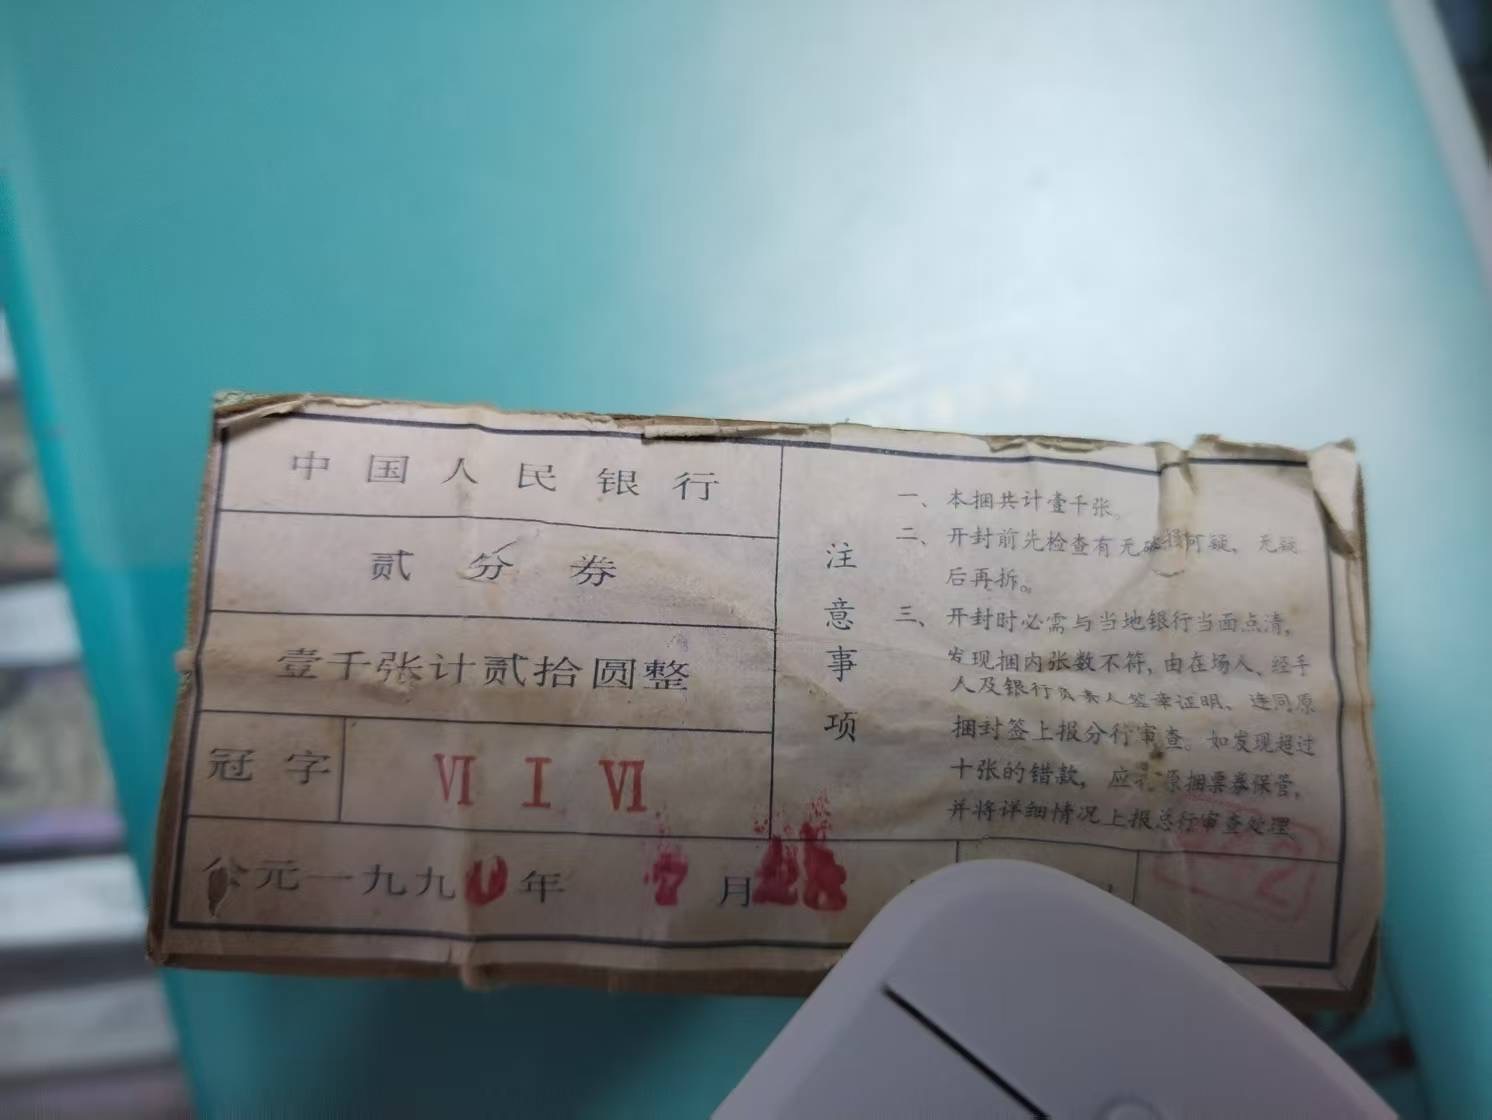 中国人民银行
贰分券
壹千张计贰拾圆整
冠字 Ⅵ Ⅰ Ⅵ
公元一九九0年 7月28
注意事项
一、本捆共计壹千张。
二、开封前先检查有无破损可疑，无疑
后再拆。
三、开封时必需与当地银行当面点清，
发现捆内张数不符，由在场人、经手
人及银行负责人签章证明，连同原
捆封签上报分行审查。如发现超过
十张的错款，应 原捆票券保管，
并将详细情况上报总行审查处理